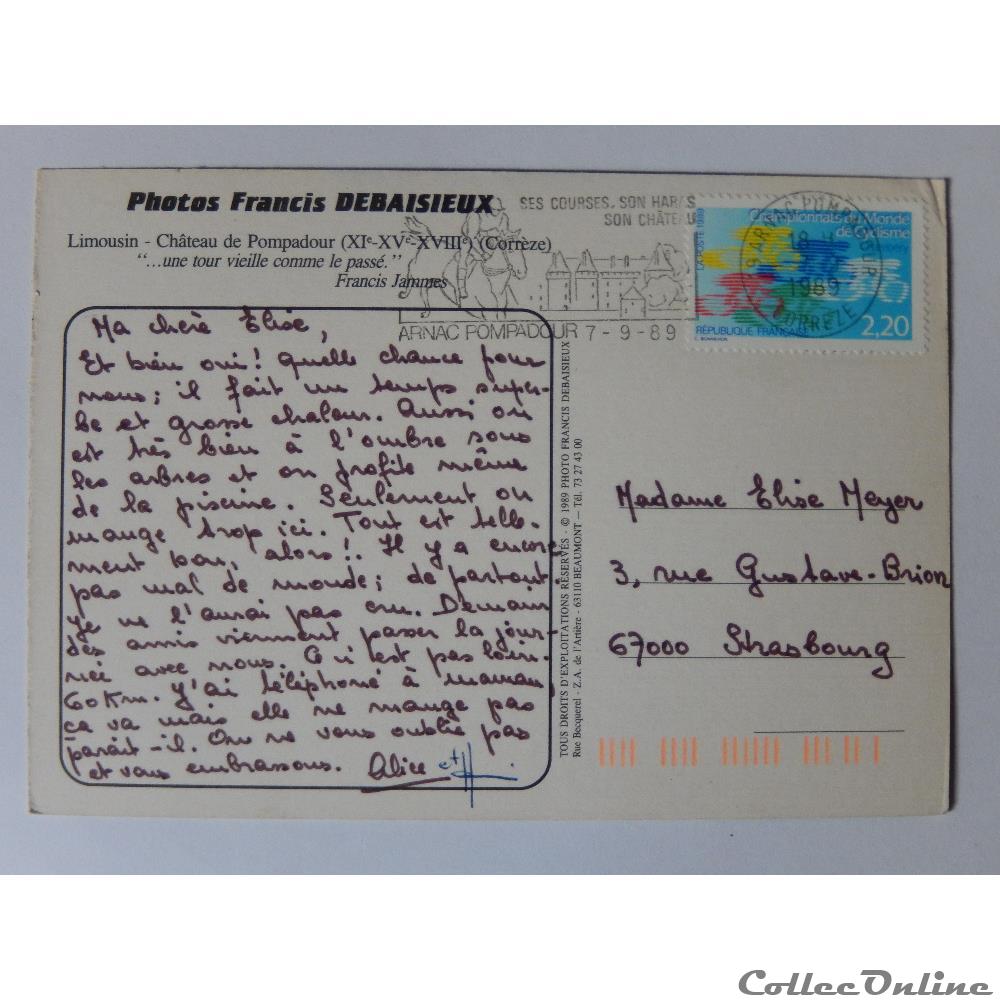 Photos Francis DEBAISIEUX
Limousin - Château de Pompadour (XIe-XVe-XVIIIe) (Corrèze)
"...une tour vieille comme le passé."
Francis Jammes
SES COURSES, SON HARAS
SON CHÂTEAU
ARNAC POMPADOUR 7-9-89
LA POSTE 1989
Championnats du Monde
de Cyclisme
RÉPUBLIQUE FRANÇAISE
2,20
ARNAC POMPADOUR
18 H
1989
CORRÈZE
Ma chère Elise,
Et bien oui! Quelle chance pour
nous; il fait un temps super-
be et grosse chaleur. Aussi on
est très bien à l'ombre sous
les arbres et on profite même
de la piscine. Seulement on
mange trop ici. Tout est telle-
ment bon, alors!. Il y a encore
pas mal de monde; de partout.
Je ne l'aurai pas cru. Demain
des amis viennent passer la jour-
née avec nous. Ce n'est pas loin-
60 Km. J'ai téléphoné à maman,
ça va mais elle ne mange pas
paraît-il. On ne vous oublie pas
et vous embrassons. Alice et
TOUS DROITS D'EXPLOITATIONS RÉSERVÉS - © 1989 PHOTO FRANCIS DEBAISIEUX
Rue Becquerel - Z.A. de l'Artière - 63110 BEAUMONT — Tél. 73 27 43 00
Madame Elise Meyer
3, rue Gustave-Brion
67000 Strasbourg
CollecOnline